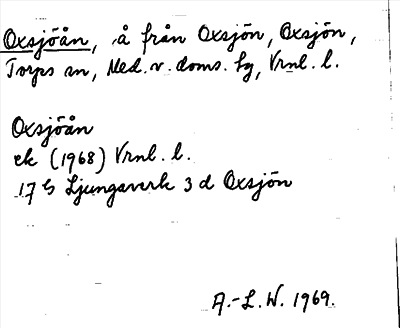 Oxsjöån, å från Oxsjön, Oxsjön,
Torps sn, Med. v. doms. lg, Vrnl. l.
Oxsjöån
ek (1968) Vrnl. l.
17 G Ljungaverk 3 d Oxsjön
A.-L. W. 1969.